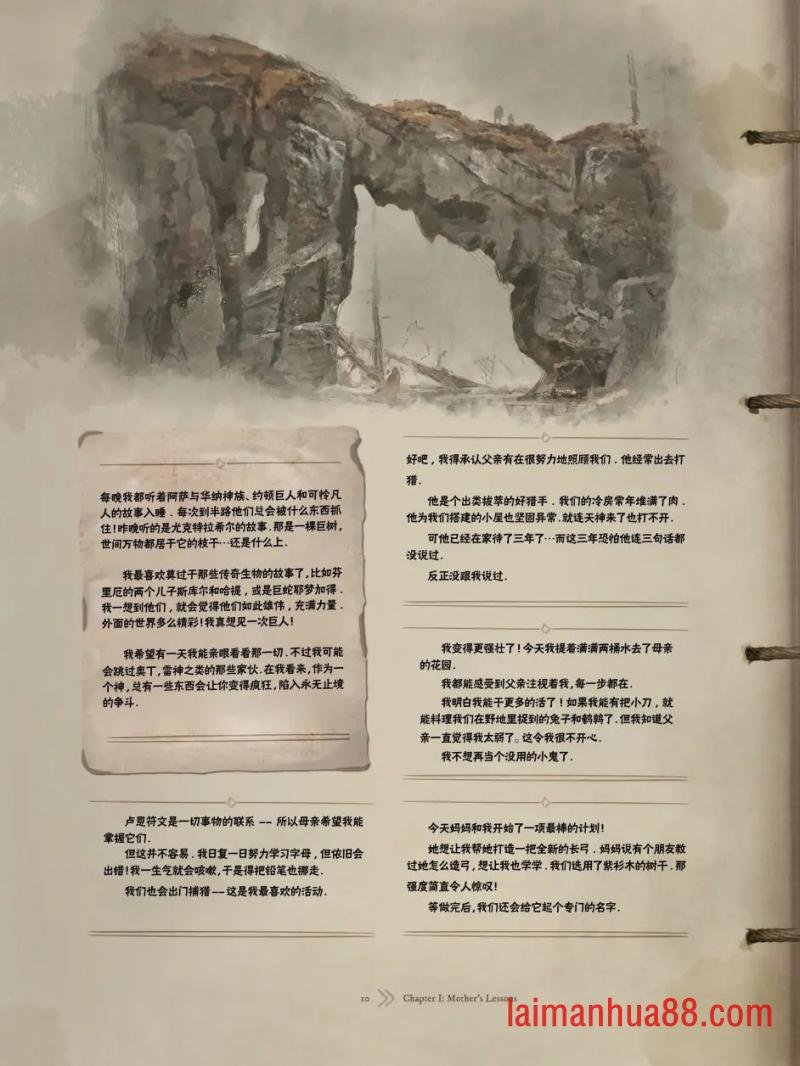 每晚我都听着阿萨与华纳神族、约顿巨人和可怜凡
人的故事入睡．每次到半路他们总会被什么东西抓
住！昨晚听的是尤克特拉希尔的故事．那是一棵巨树，
世间万物都居于它的枝干…还是什么上．
我最喜欢莫过于那些传奇生物的故事了，比如芬
里厄的两个儿子斯库尔和哈提，或是巨蛇耶梦加得．
我一想到他们，就会觉得他们如此雄伟，充满力量．
外面的世界多么精彩！我真想见一次巨人！
我希望有一天我能亲眼看看那一切．不过我可能
会跳过奥丁，雷神之类的那些家伙．在我看来，作为一
个神，总有一些东西会让你变得疯狂，陷入永无止境
的争斗．
卢恩符文是一切事物的联系 -- 所以母亲希望我能
掌握它们．
但这并不容易．我日复一日努力学习字母，但依旧会
出错！我一生气就会咳嗽，于是得把铅笔也挪走．
我们也会出门捕猎--这是我最喜欢的活动．
好吧，我得承认父亲有在很努力地照顾我们．他经常出去打
猎．
他是个出类拔萃的好猎手．我们的冷房常年堆满了肉．
他为我们搭建的小屋也坚固异常．就连天神来了也打不开．
可他已经在家待了三年了…而这三年恐怕他连三句话都
没说过．
反正没跟我说过．
我变得更强壮了！今天我提着满满两桶水去了母亲
的花园．
我都能感受到父亲注视着我，每一步都在．
我明白我能干更多的活了！如果我能有把小刀，就
能料理我们在野地里捉到的兔子和鹌鹑了．但我知道父
亲一直觉得我太弱了。这令我很不开心．
我不想再当个没用的小鬼了．
今天妈妈和我开始了一项最棒的计划！
她想让我帮她打造一把全新的长弓．妈妈说有个朋友教
过她怎么造弓，想让我也学学．我们选用了紫衫木的树干．那
强度简直令人惊叹！
等做完后，我们还会给它起个专门的名字．
10 Chapter I: Mother's Lessons
laimanhua88.com